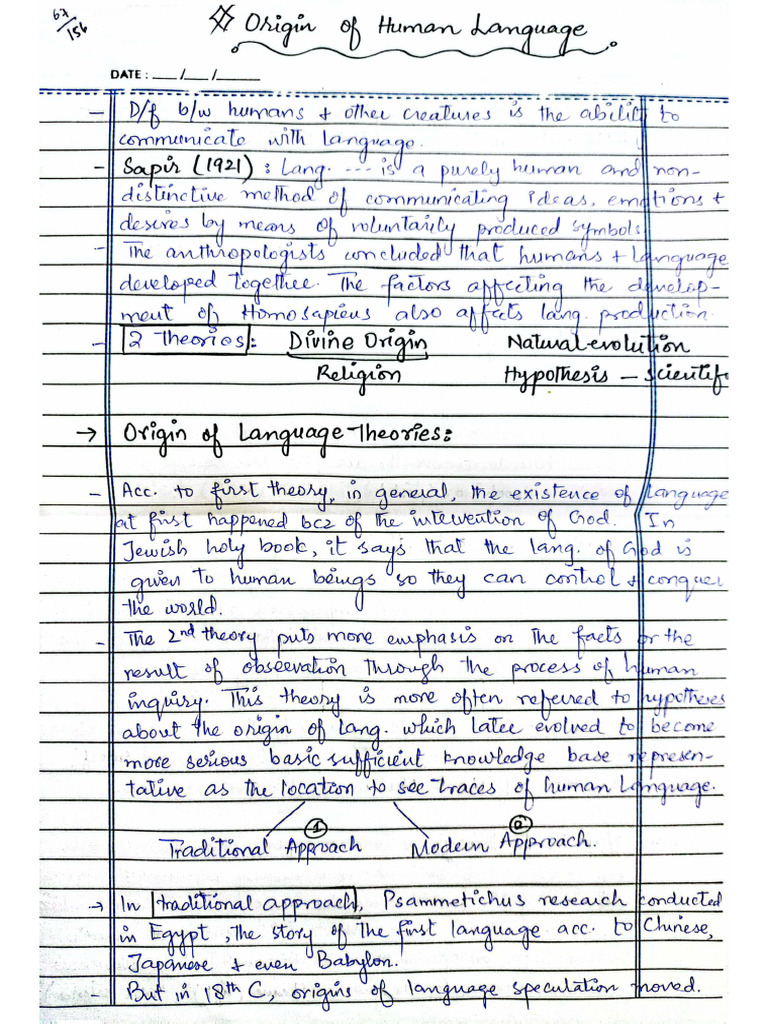 67/156
Origin of Human Language
DATE : ___/___/_____
- D/f b/w humans + other creatures is the ability to
communicate with language.
- Sapir (1921) : Lang. --- is a purely human and non-
distinctive method of communicating ideas, emotions +
desires by means of voluntarily produced symbols
- The anthropologists concluded that humans + Language
developed together. The factors affecting the develop-
ment of Homosapiens also affects lang. production.
- 2 Theories : Divine Origin Natural-evolution
Religion Hypothesis - Scientif
→ Origin of Language-Theories:
- Acc. to first theory, in general, the existence of language
at first happened bcz of the intervention of God. In
Jewish holy book, it says that the lang. of God is
given to human beings so they can control + conquer
the world.
- The 2nd theory puts more emphasis on the facts or the
result of observation through the process of human
inquiry. This theory is more often referred to hypotheses
about the origin of lang. which later evolved to become
more serious basic sufficient knowledge base represen-
tative as the location to see traces of human language.
① ②
Traditional Approach Modern Approach.
→ In traditional approach, Psammetichus research conducted
in Egypt, the story of the first language acc. to Chinese,
Japanese + even Babylon.
- But in 18th C, origins of language speculation moved.